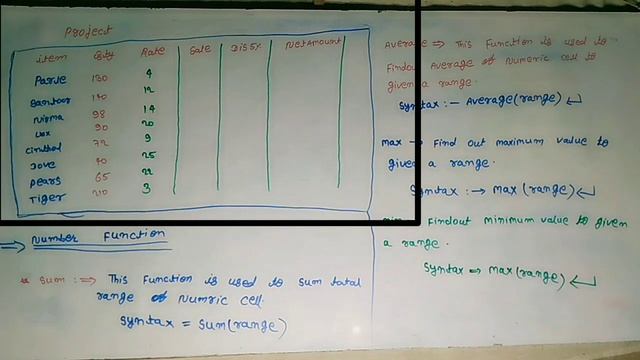 Project
item Qity Rate Sale Dis5% NetAmount
Parle 130 4
Santoor 140 12
Nirma 98 14
Lux 90 20
Cinthol 72 9
Dove 40 25
Pears 65 22
Tiger 210 3
Number Function
Sum :=> This Function is used to sum total
range of Numric cell.
Syntax = Sum(range)
Average => This Function is used to
Findout Average of Numeric cell to
given a range.
Syntax :- Average(range)
max → Find out maximum value to
given a range.
Syntax :→ Max (range)
Findout minimum value to given
a range.
Syntax => max(range)